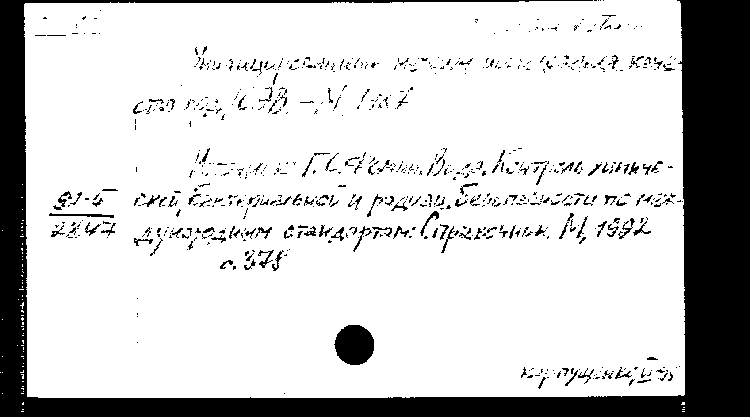 Унифицированные методы исследования каче-
ства вод, СЭВ. – М, 1987
Источник: Г.С. Фомин. Вода. Контроль химиче-
91-5 ской, бактериальной и радиац. безопасности по меж-
2847 дународным стандартам: Справочник. М, 1992
с. 378
Карпущенко, II 95